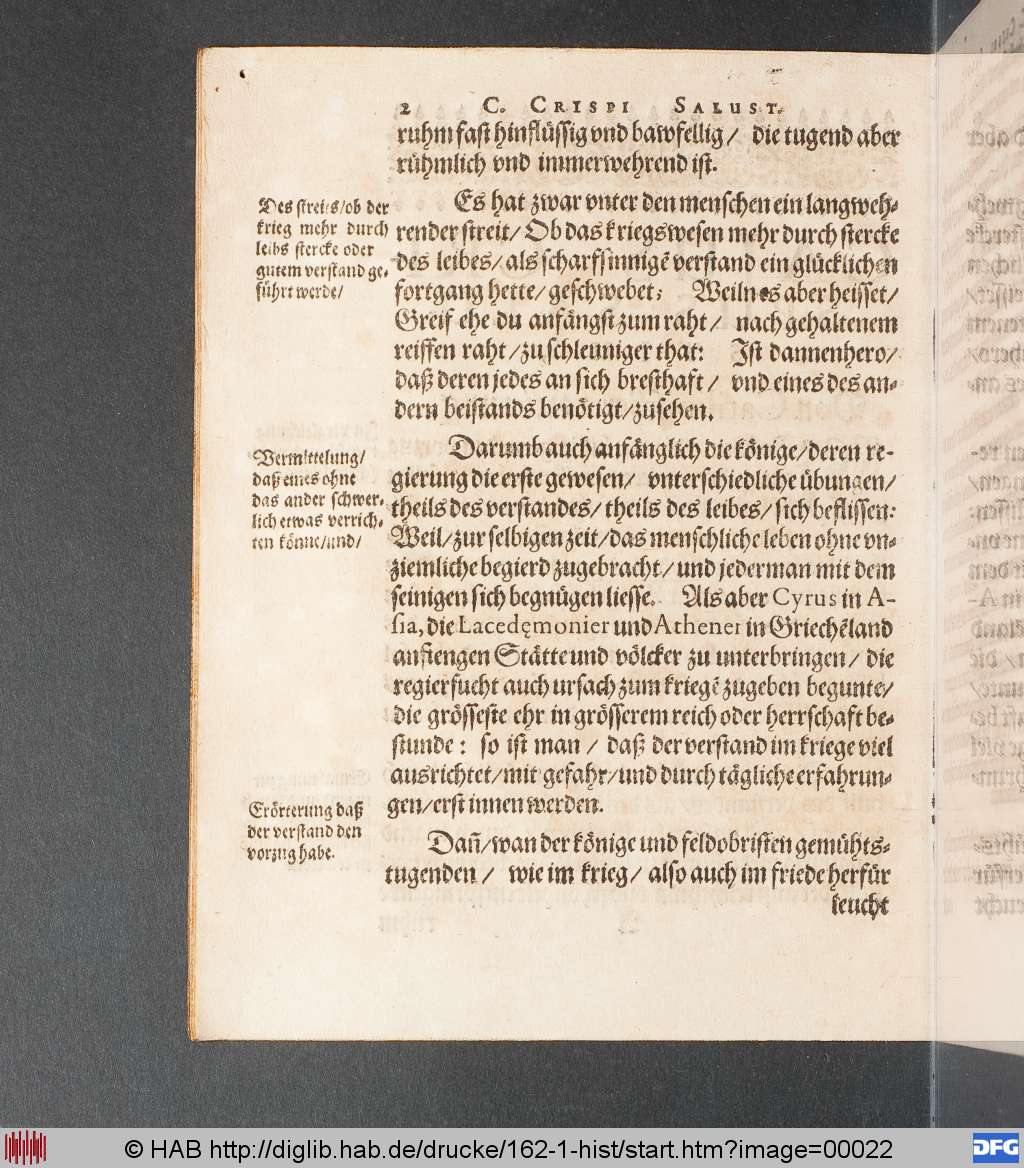 2 C. CRISPI SALUST.
ruhm fast hinflüssig vnd bawfellig/ die tugend aber
rühmlich vnd immerwehrend ist.
Des streits/ob der
krieg mehr durch
leibs stercke oder
gutem verstand ge-
führt werde/
Es hat zwar vnter den menschen ein langweh-
render streit/ Ob das kriegswesen mehr durch stercke
des leibes/ als scharfsinnigē verstand ein glücklichen
fortgang hette/ geschwebet; Weiln es aber heisset/
Greif ehe du anfängst zum raht/ nach gehaltenem
reiffen raht/ zu schleuniger that: Ist dannenhero/
daß deren jedes an sich bresthaft/ vnd eines des an-
dern beistands benötigt/ zusehen.
Vermittelung/
daß eines ohne
das ander schwer-
lich etwas verrich-
ten könne/und/
Darumb auch anfänglich die könige/ deren re-
gierung die erste gewesen/ vnterschiedliche übungen/
theils des verstandes/ theils des leibes/ sich beflissen:
Weil/ zur selbigen zeit/ das menschliche leben ohne vn-
ziemliche begierd zugebracht/ und jederman mit dem
seinigen sich begnügen liesse. Als aber Cyrus in A-
sia, die Lacedęmonier und Athener in Griechēland
anfiengen Stätte und völcker zu unterbringen/ die
regiersucht auch ursach zum kriegē zugeben begunte/
die grösseste ehr in grösserem reich oder herrschaft be-
stunde: so ist man/ daß der verstand im kriege viel
ausrichtet/ mit gefahr/ und durch tägliche erfahrun-
gen/ erst innen werden.
Erörterung daß
der verstand den
vorzug habe.
Dañ/ wan der könige und feldobristen gemühts-
tugenden/ wie im krieg/ also auch im friede herfür
leucht
© HAB http://diglib.hab.de/drucke/162-1-hist/start.htm?image=00022
DFG